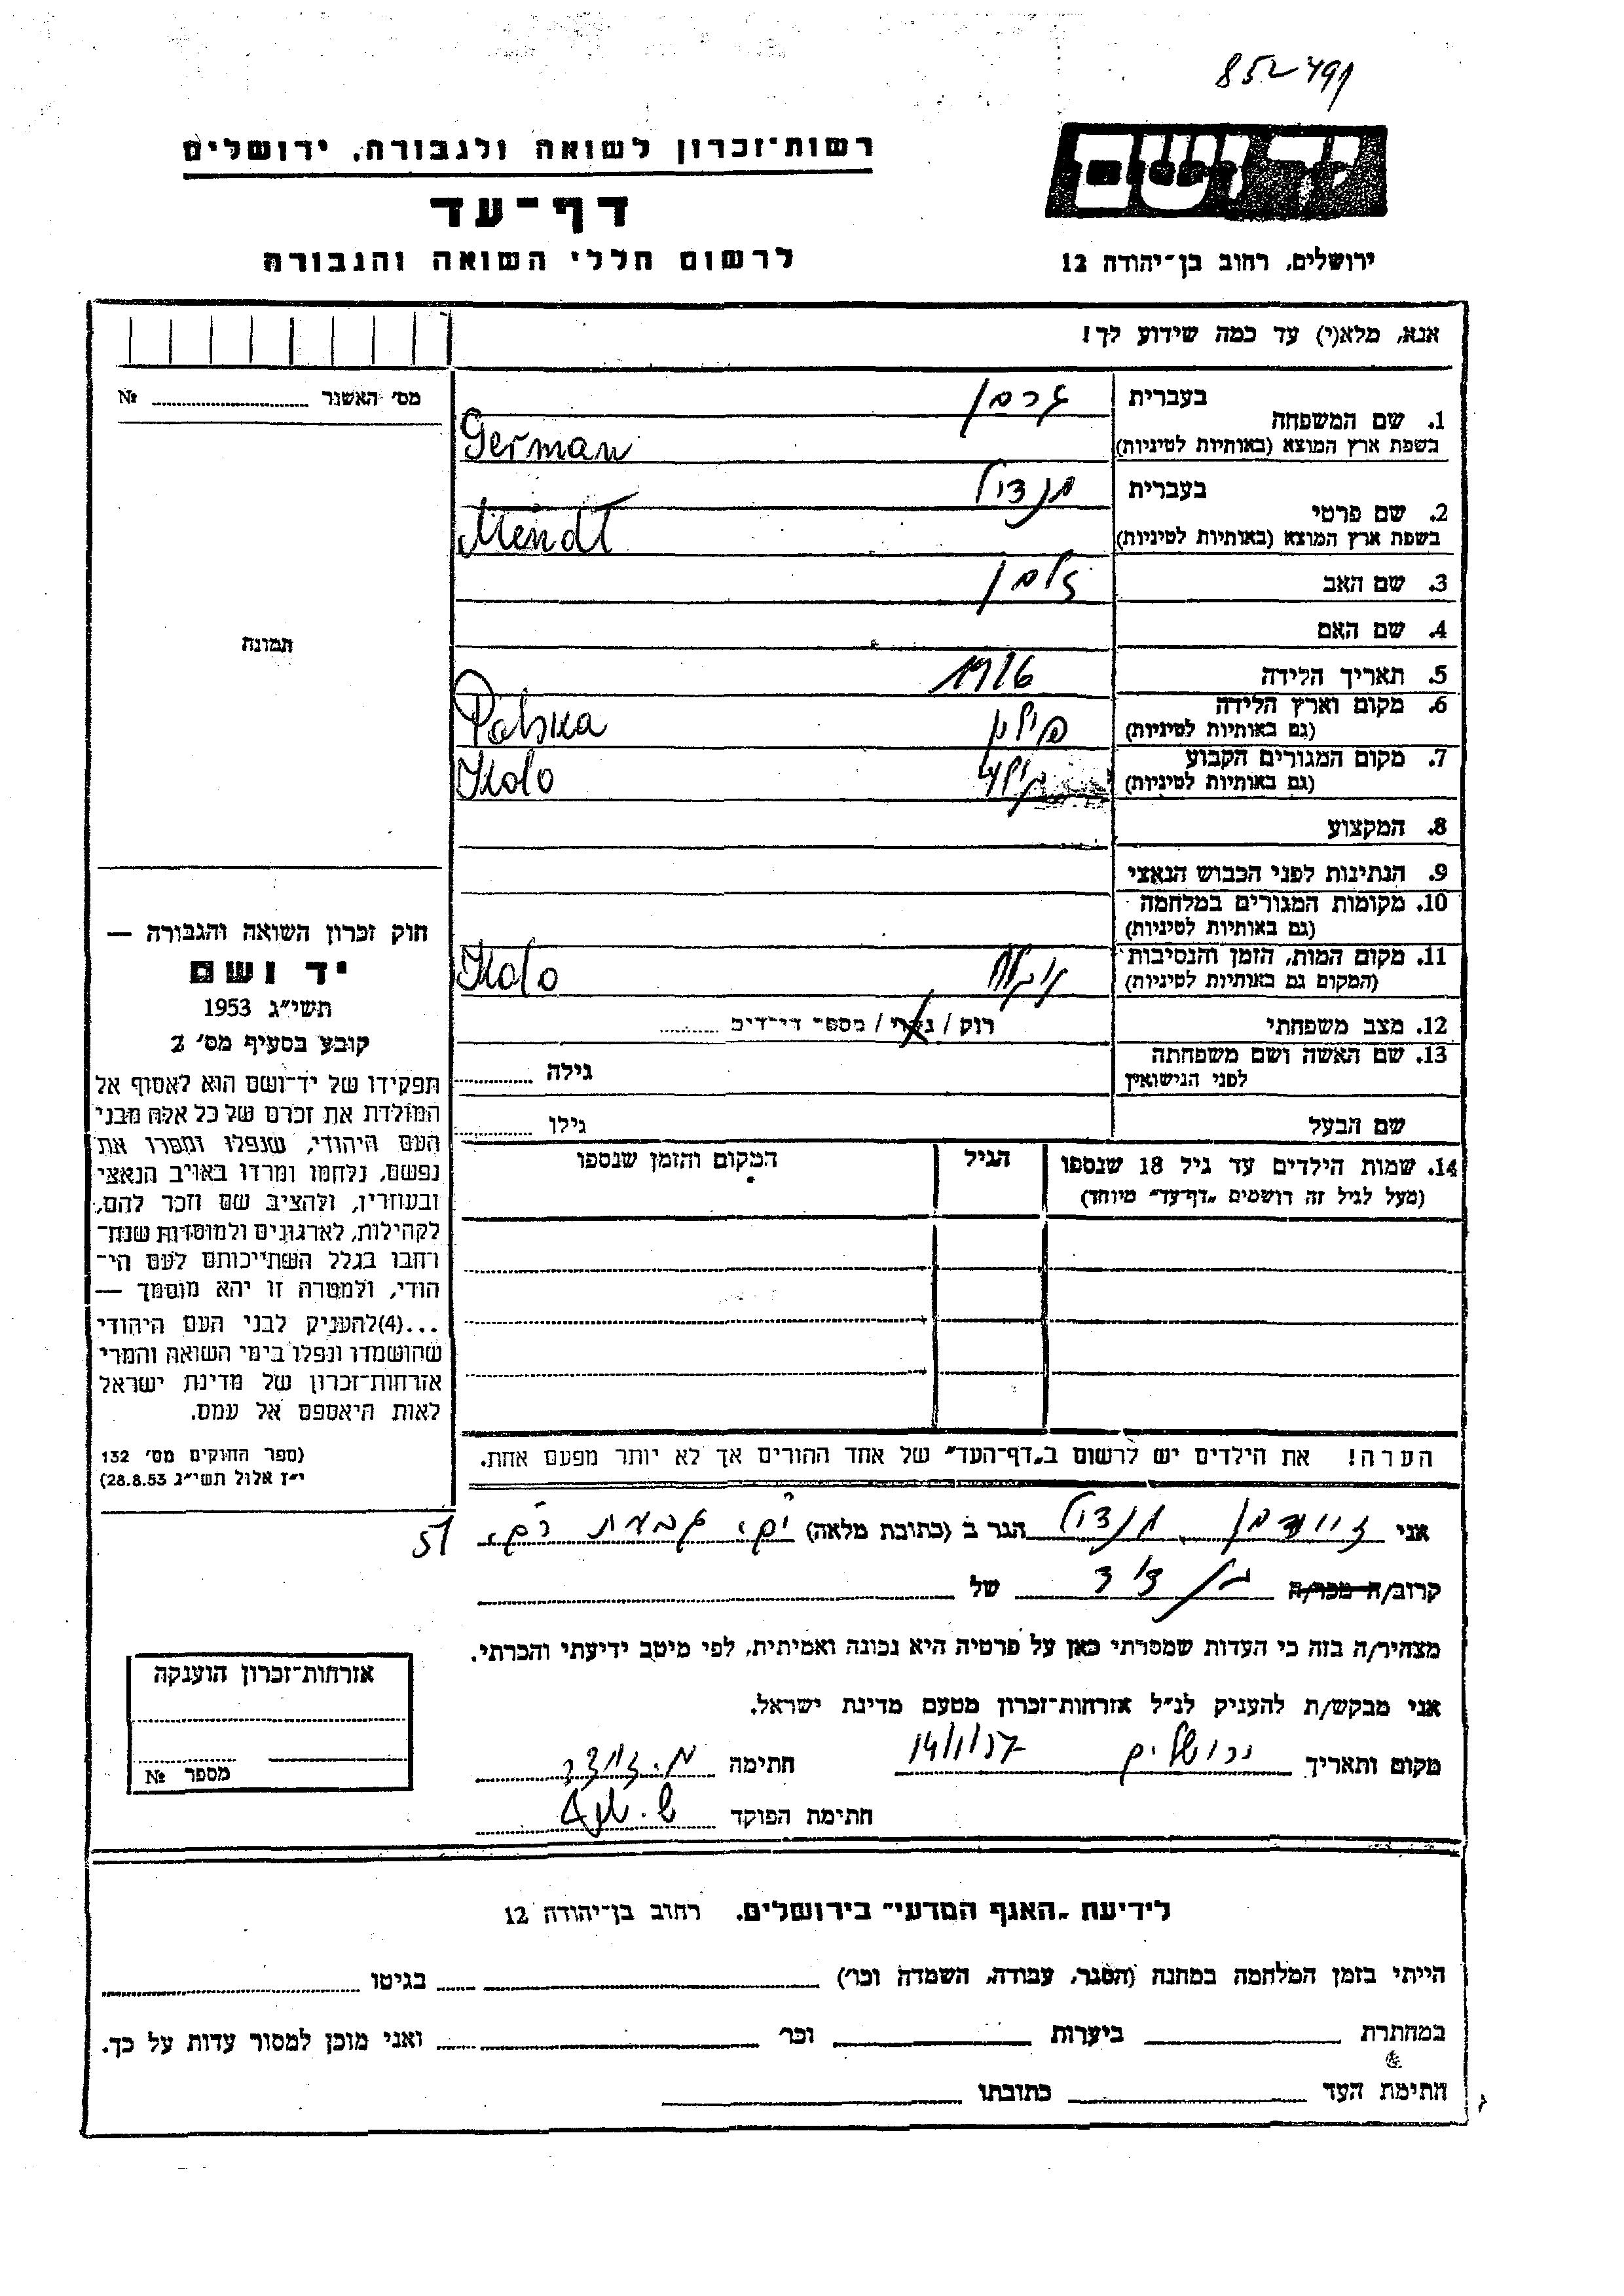 852491
רשות־זכרון לשואה ולגבורה, ירושלים
יד ושם
דף־עד
לרשום חללי השואה והגבורה
ירושלים, רחוב בן־יהודה 12
אנא, מלא(י) עד כמה שידוע לך!
מס׳ האשור № 
1. שם המשפחה בעברית גרמן
בשפת ארץ המוצא (באותיות לטיניות) German
2. שם פרטי בעברית מנדל
בשפת ארץ המוצא (באותיות לטיניות)
3. שם האב זלמן
4. שם האם
תמונה
5. תאריך הלידה 1916
6. מקום וארץ הלידה (גם באותיות לטיניות) פולין Polska
7. מקום המגורים הקבוע (גם באותיות לטיניות) Kolo
8. המקצוע
9. הנתינות לפני הכבוש הנאצי
10. מקומות המגורים במלחמה (גם באותיות לטיניות)
11. מקום המות, הזמן והנסיבות (המקום גם באותיות לטיניות) Kolo
12. מצב משפחתי רוק / נשוי / מספר הילדים
13. שם האשה ושם משפחתה לפני הנישואין גילה
שם הבעל גילו
14. שמות הילדים עד גיל 18 שנספו
(מעל לגיל זה רושמים „דף־עד״ מיוחד)
הגיל
המקום והזמן שנספו
חוק זכרון השואה והגבורה —
יד ושם
תשי״ג 1953
קובע בסעיף מס׳ 2
תפקידו של יד־ושם הוא לאסוף אל
המולדת את זכרם של כל אלה מבני
העם היהודי, שנפלו ומסרו את
נפשם, נלחמו ומרדו באויב הנאצי
ובעוזריו, ולהציב שם וזכר להם,
לקהילות, לארגונים ולמוסדות שנח־
רבו בגלל השתייכותם לעם הי־
הודי, ולמטרה זו יהא מוסמך —
...(4)להעניק לבני העם היהודי
שהושמדו ונפלו בימי השואה והמרי
אזרחות־זכרון של מדינת ישראל
לאות היאספם אל עמם.
(ספר החוקים מס׳ 132
י״ז אלול תשי״ג 28.8.53)
הערה! את הילדים יש לרשום ב„דף־העד״ של אחד ההורים אך לא יותר מפעם אחת.
אני מנדל הגר ב (כתובת מלאה) 51
קרוב/ה מכר/ה בן דוד של
מצהיר/ה בזה כי העדות שמסרתי כאן על פרטיה היא נכונה ואמיתית, לפי מיטב ידיעתי והכרתי.
אני מבקש/ת להעניק לנ״ל אזרחות־זכרון מטעם מדינת ישראל.
מקום ותאריך ירושלים חתימה
חתימת הפוקד
אזרחות־זכרון הוענקה
מספר №
לידיעת „האגף המדעי״ בירושלים, רחוב בן־יהודה 12
הייתי בזמן המלחמה במחנה (הסגר, עבודה, השמדה וכו׳) בגיטו
במחתרת ביערות וכו׳ ואני מוכן למסור עדות על כך.
חתימת העד כתובתו